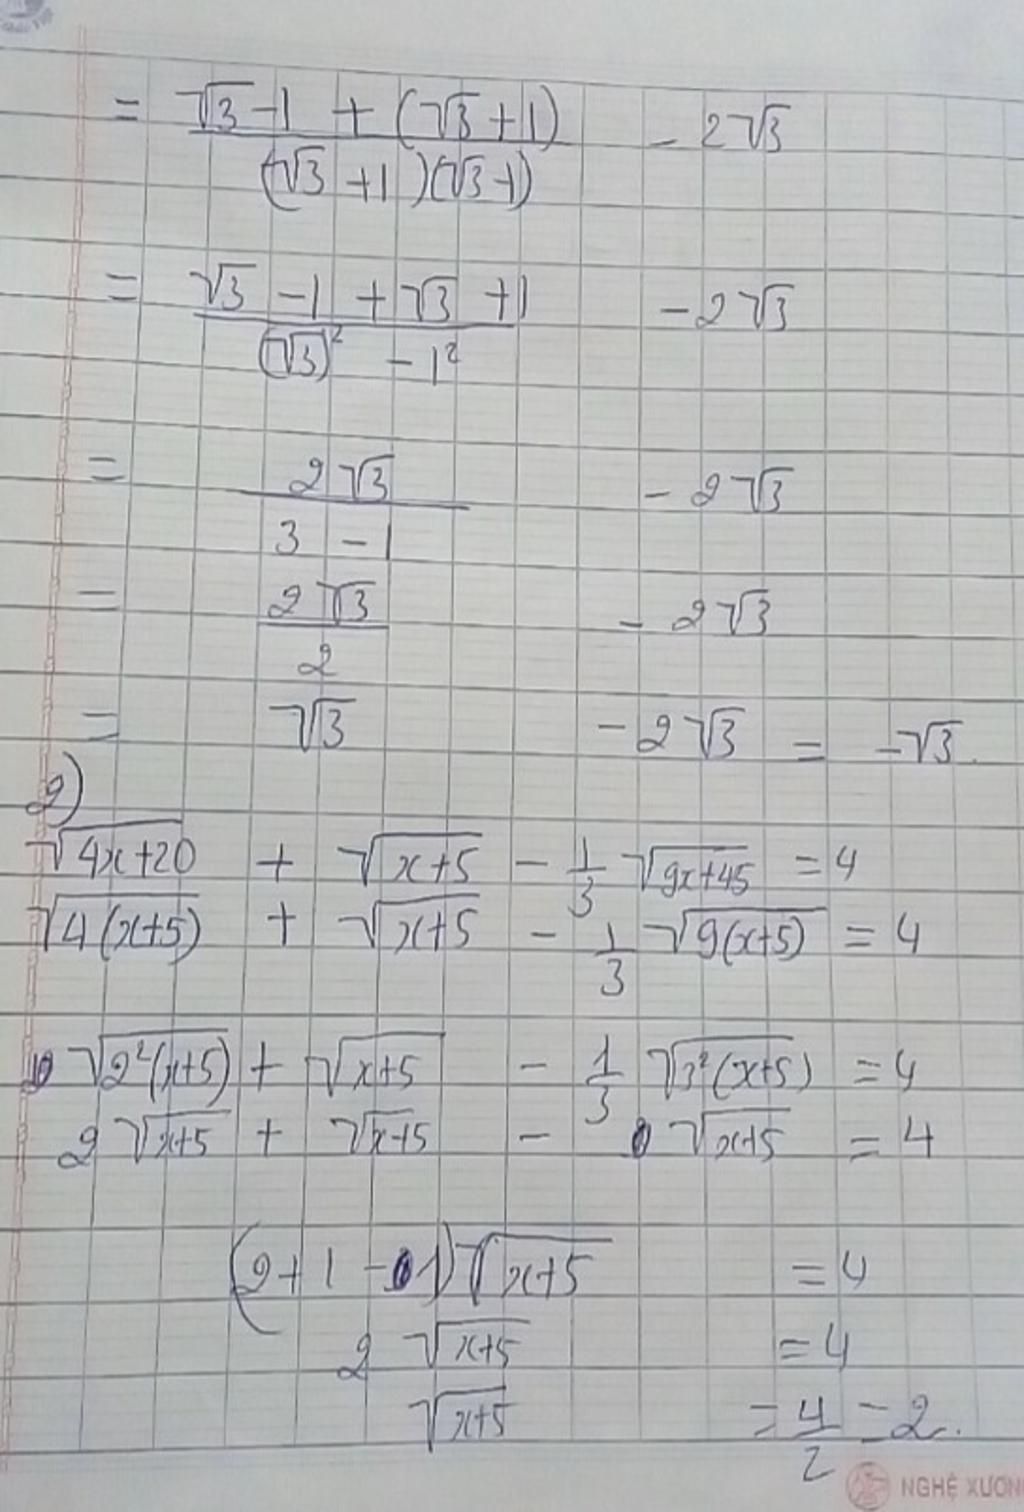 = (√3 - 1 + (√3 + 1)) / ((√3 + 1)(√3 - 1)) - 2√3
= (√3 - 1 + √3 + 1) / ((√3)² - 1²) - 2√3
= 2√3 / (3 - 1) - 2√3
= 2√3 / 2 - 2√3
= √3 - 2√3 = -√3.
2)
√(4x+20) + √(x+5) - 1/3 √(9x+45) = 4
√(4(x+5)) + √(x+5) - 1/3 √(9(x+5)) = 4
√(2²(x+5)) + √(x+5) - 1/3 √(3²(x+5)) = 4
2√(x+5) + √(x+5) - √(x+5) = 4
(2 + 1 - 1)√(x+5) = 4
2√(x+5) = 4
√(x+5) = 4/2 = 2.
NGHỆ XƯƠN